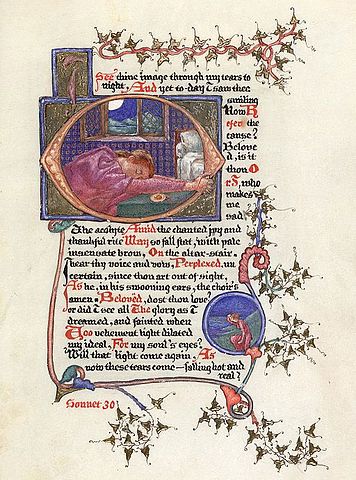 I See thine image through my tears to
night, And yet to-day I saw thee
smiling
How R
efer the
cause?
Belove
d, is it
thou O
r I, who
makes
me
sad
The acolyte Amid the chanted joy and
thankful rite May so fall flat, with pale
insensate brow, On the altar-stair.
hear thy voice and vow, Perplexed, un
certain, since thou art out of sight,
As he, in his swooning ears, the choir's
amen. Beloved, dost thou love?
or did I see all The glory as I
dreamed, and fainted when
Too vehement light dilated
my ideal, For my soul's eyes?
Will that light come again, As
now these tears come—falling hot and
real?
Sonnet 30